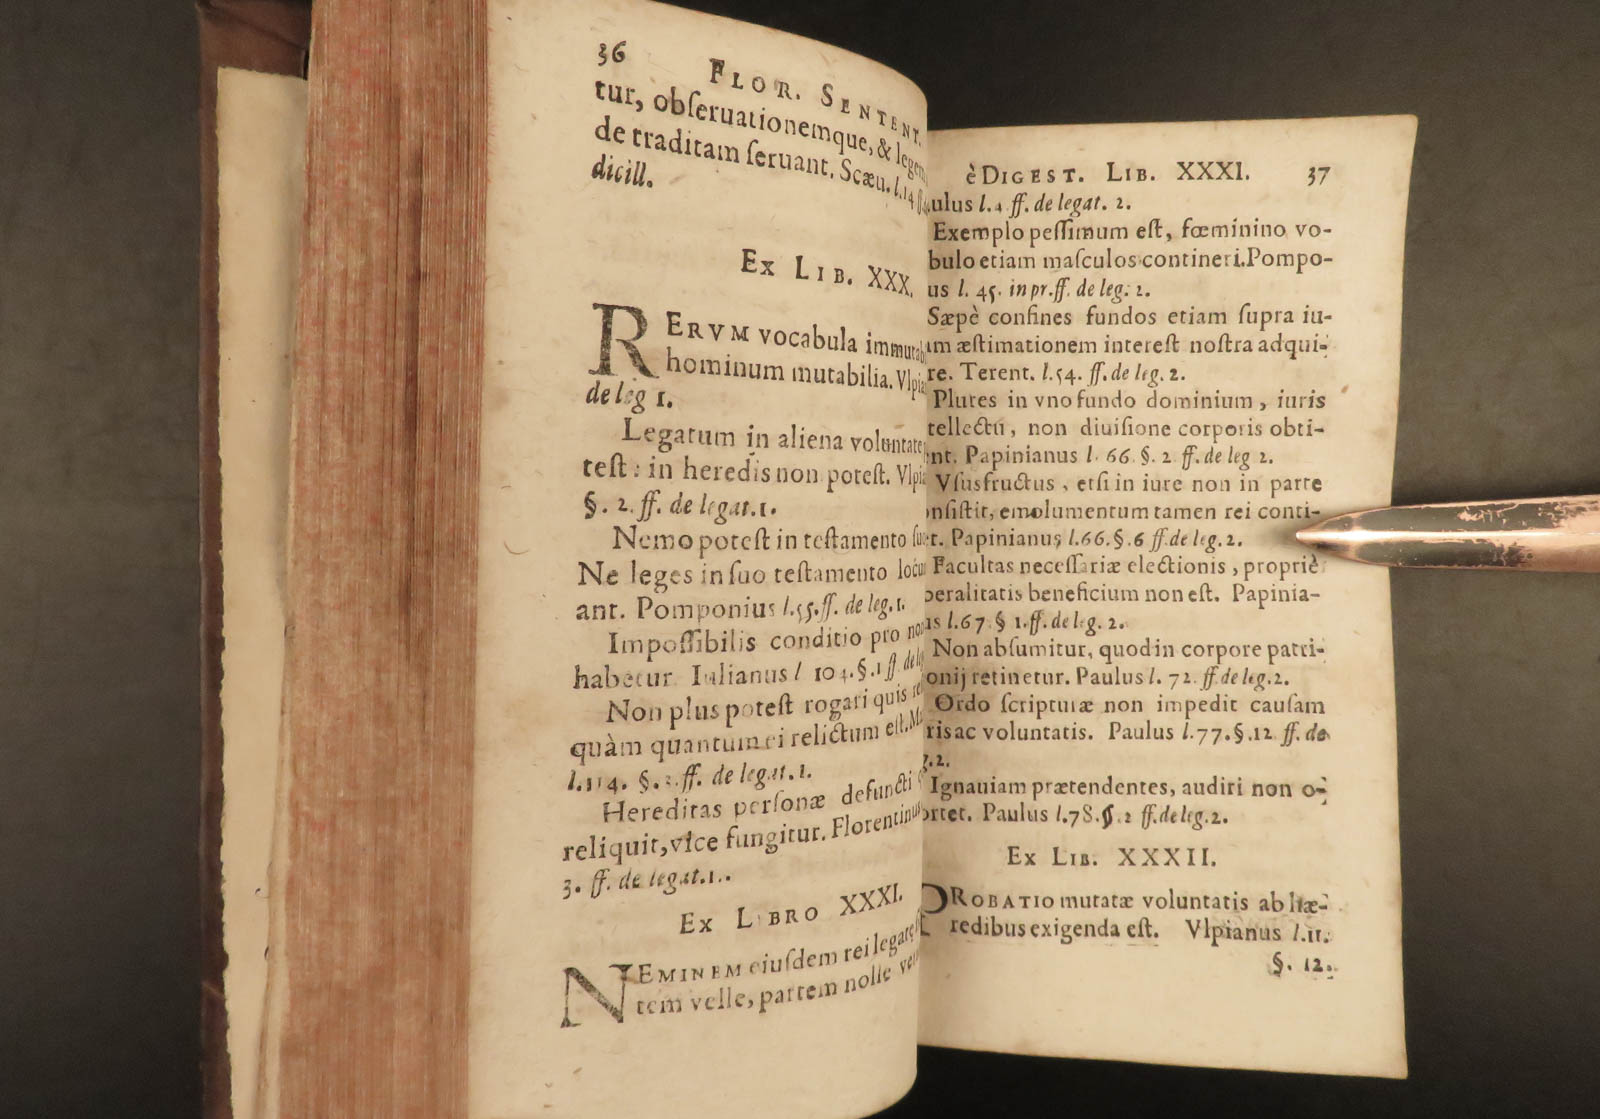 36 FLOR. SENTENT.
tur, obſeruationemque, & legem
de traditam ſeruant. Scæu. l. 14 ff. de
dicill.
EX LIB. XXX.
RERVM vocabula immutab
hominum mutabilia. Vlpia
de leg 1.
Legatum in aliena voluntate
teſt: in heredis non poteſt. Vlpia
§. 2. ff. de legat. 1.
Nemo poteſt in teſtamento ſuo
Ne leges in ſuo teſtamento locum
ant. Pomponius l. 55. ff. de leg. 1.
Impoſſibilis conditio pro non
habetur. Iulianus l 104. §. 1 ff de leg
Non plus poteſt rogari quis
quàm quantum ei relictum eſt.
l. 114. §. 3. ff. de legat. 1.
Hereditas perſonæ defuncti
reliquit, vice fungitur. Florentinus
3. ff. de legat. 1..
EX LIBRO XXXI.
NEMINEM eiuſdem rei legatę
tem velle, partem nolle
è DIGEST. LIB. XXXI. 37
ulus l. 4 ff. de legat. 2.
Exemplo peſſimum eſt, fœminino vo-
bulo etiam maſculos contineri. Pompo-
us l. 45. in pr. ff. de leg. 2.
Sæpè confines fundos etiam ſupra iu-
am æſtimationem intereſt noſtra adqui-
re. Terent. l. 54. ff. de leg. 2.
Plures in vno fundo dominium, iuris
tellectu, non diuiſione corporis obti-
ent. Papinianus l. 66. §. 2 ff. de leg 2.
Vſusfructus, etſi in iure non in parte
onſiſtit, emolumentum tamen rei conti-
t. Papinianus l. 66. §. 6 ff. de leg. 2.
Facultas neceſſariæ electionis, propriè
beralitatis beneficium non eſt. Papinia-
us l. 67. § 1. ff. de leg. 2.
Non abſumitur, quod in corpore patri-
onij retinetur. Paulus l. 72. ff. de leg. 2.
Ordo ſcripturæ non impedit cauſam
ris ac voluntatis. Paulus l. 77. §. 12 ff. de
g. 2.
Ignauiam prætendentes, audiri non o-
ortet. Paulus l. 78. §. 2 ff. de leg. 2.
EX LIB. XXXII.
PROBATIO mutatæ voluntatis ab hæ-
redibus exigenda eſt. Vlpianus l. 11.
§. 12.